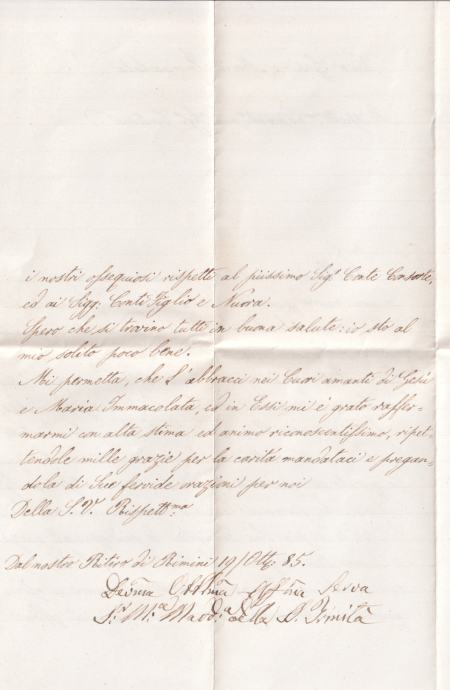 i nostri ossequiosi rispetti al piissimo Sigr Conte Consorte,
ed ai Sigg. Conti Figlio e Nuora.
Spero che si trovino tutti in buona salute: io sto al
mio solito poco bene.
Mi permetta, che L'abbracci nei Cuori amanti di Gesù
e Maria Immacolata, ed in Essi mi è grato raffer-
marmi con alta stima ed animo riconoscentissimo, ripet-
tendole mille grazie per la carità mandataci e pregan-
dola di Sue fervide orazioni per noi
Della S. V. Rispettma
Dal nostro Ritiro di Rimini 19/ 85.
Devma Serva
Sr Ma Madda della S. Umiltà